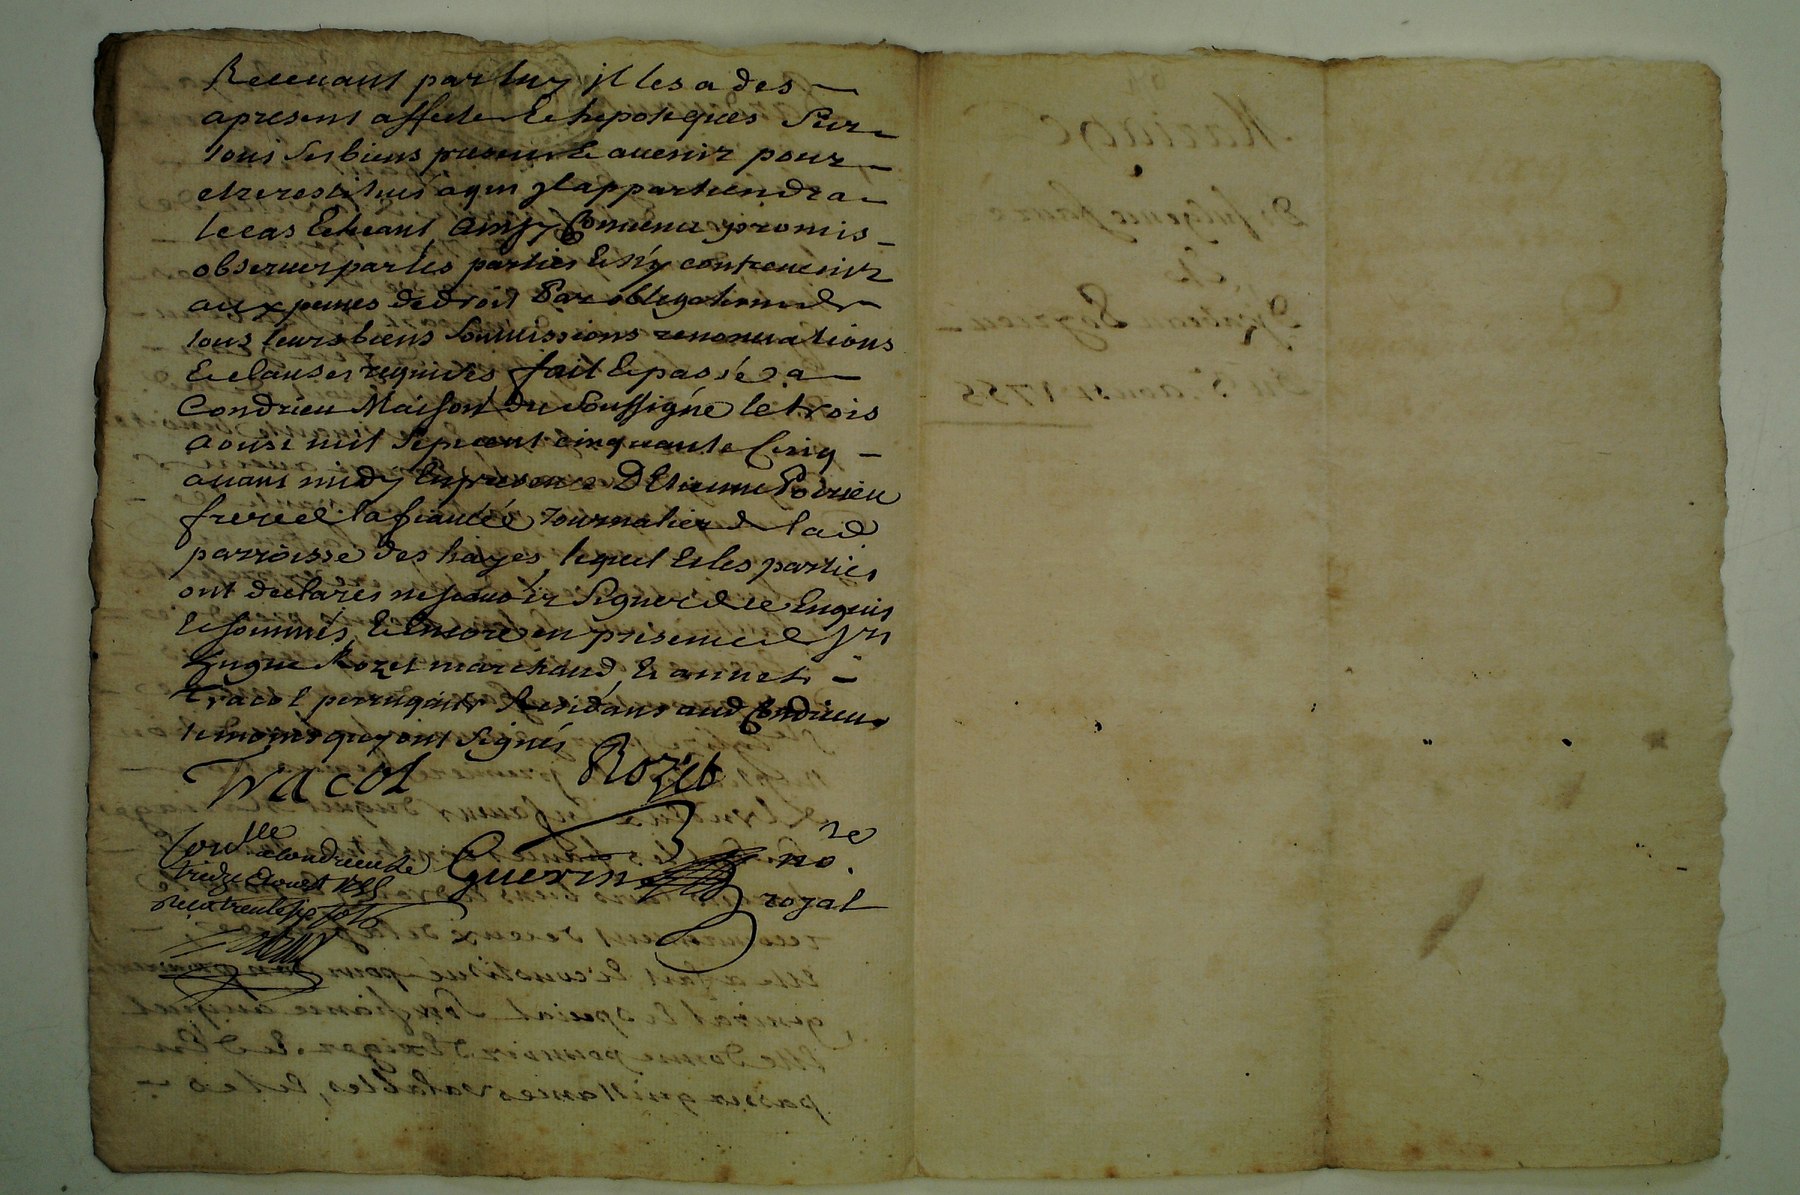 Receuant par luy jl les a des
apresent affecté & hepotequés Sur
tous ses biens presens & auenir pour
etre restitués a qui jl appartiendra
le cas Echeant ainsy Conuenu promis
obseruer par les parties & n'y contreuenir
aux peines de droit Par obligation de
tous leurs biens Soumissions renonciations
& clauses requises fait & passé a
Condrieu Maison du Soussigné le trois
aoust mil Sept cent cinquante Cinq
auant midy En presence D'Etienne
frere de la fiancée Journalier de lad
parroisse des hayes, lequel & les parties
ont declarés ne scauoir Signer de ce Enquis
& sommés, & Encore en presence de
Hugue Rozet marchand, & annet
Tracol perruquier Residans aud Condrieu
temoins quy ont Signés
Tracol Rozet
Guerin no.re
royal
Con.lle a Condrieu le
treize aoust 1755
Mariage
De fulgence
&
Du 3.e aoust 1755